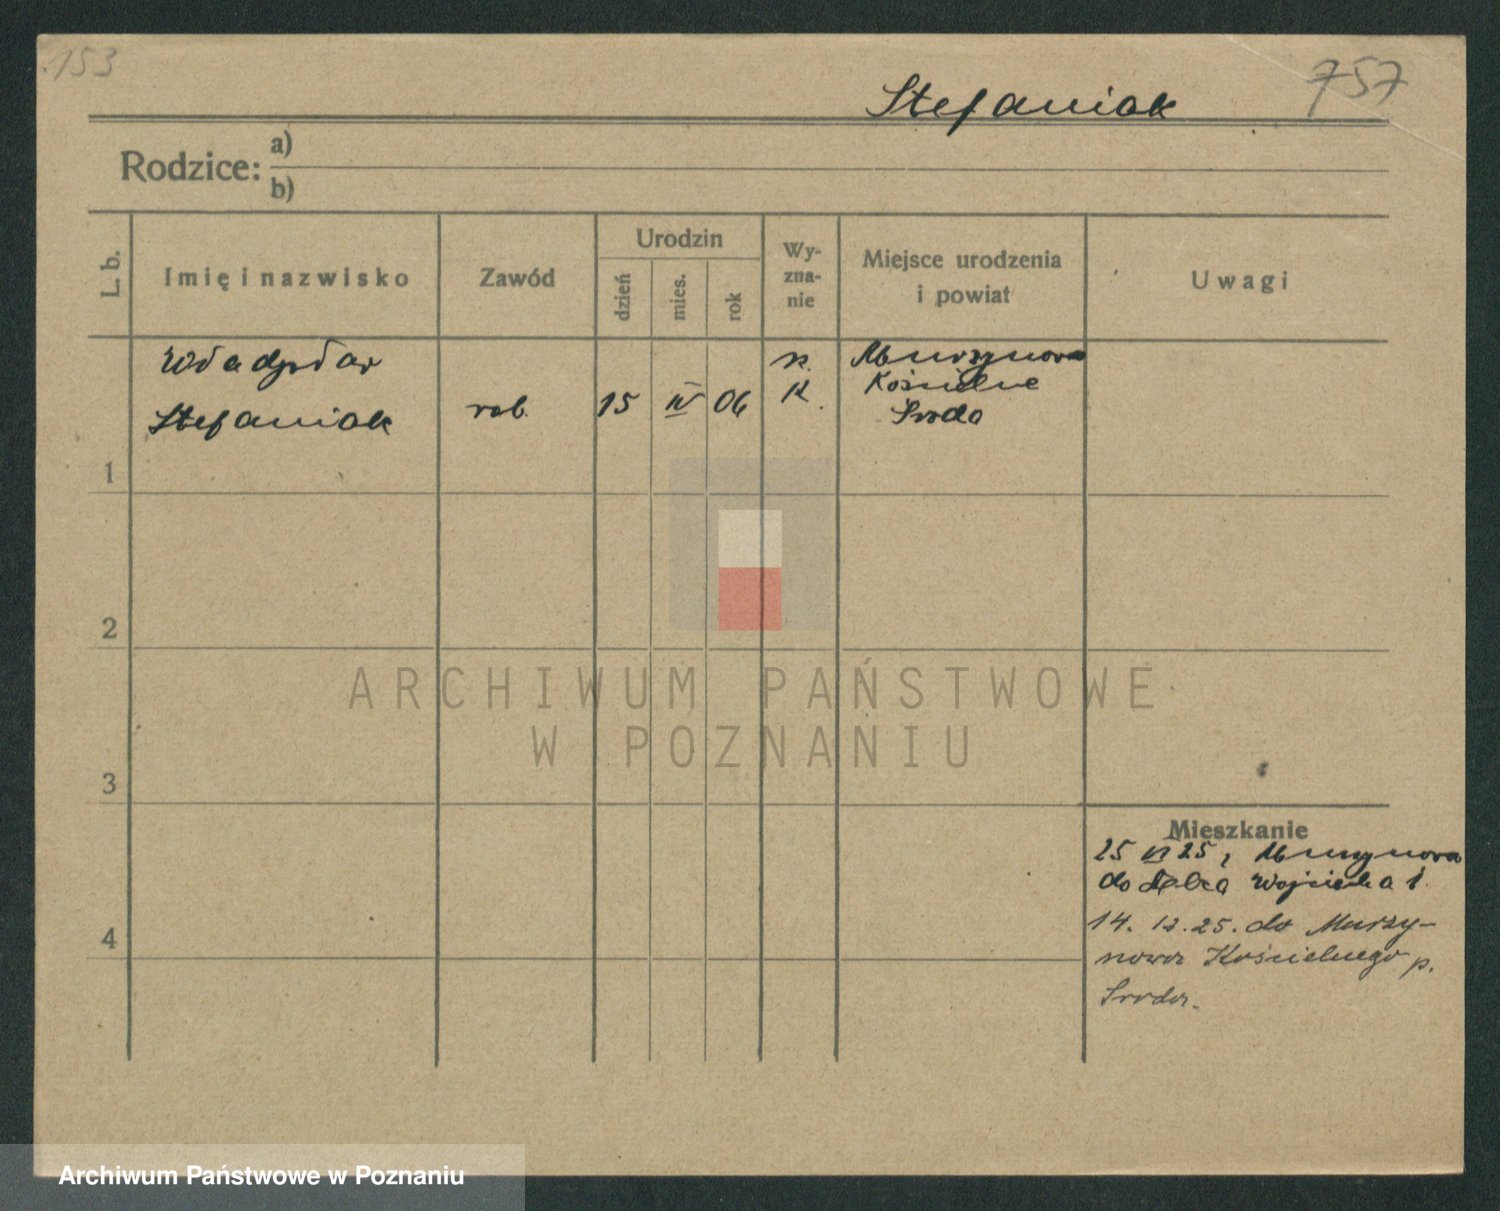 153
757
Stefaniak
Rodzice:
a)
b)
L. b.
Imię i nazwisko
Zawód
Urodzin
dzień
mies.
rok
Wy-
zna-
nie
Miejsce urodzenia
i powiat
Uwagi
Władysław
Stefaniak
rob.
15
IV
06
r.
k.
Murzynowo
Kościelne
Środa
1
2
3
4
ARCHIWUM PAŃSTWOWE
W POZNANIU
Mieszkanie
25 VI 25 z Murzynowa
do Wojciecha 1.
14. 12. 25. do Murzy-
nowa Kościelnego p.
Środa.
Archiwum Państwowe w Poznaniu